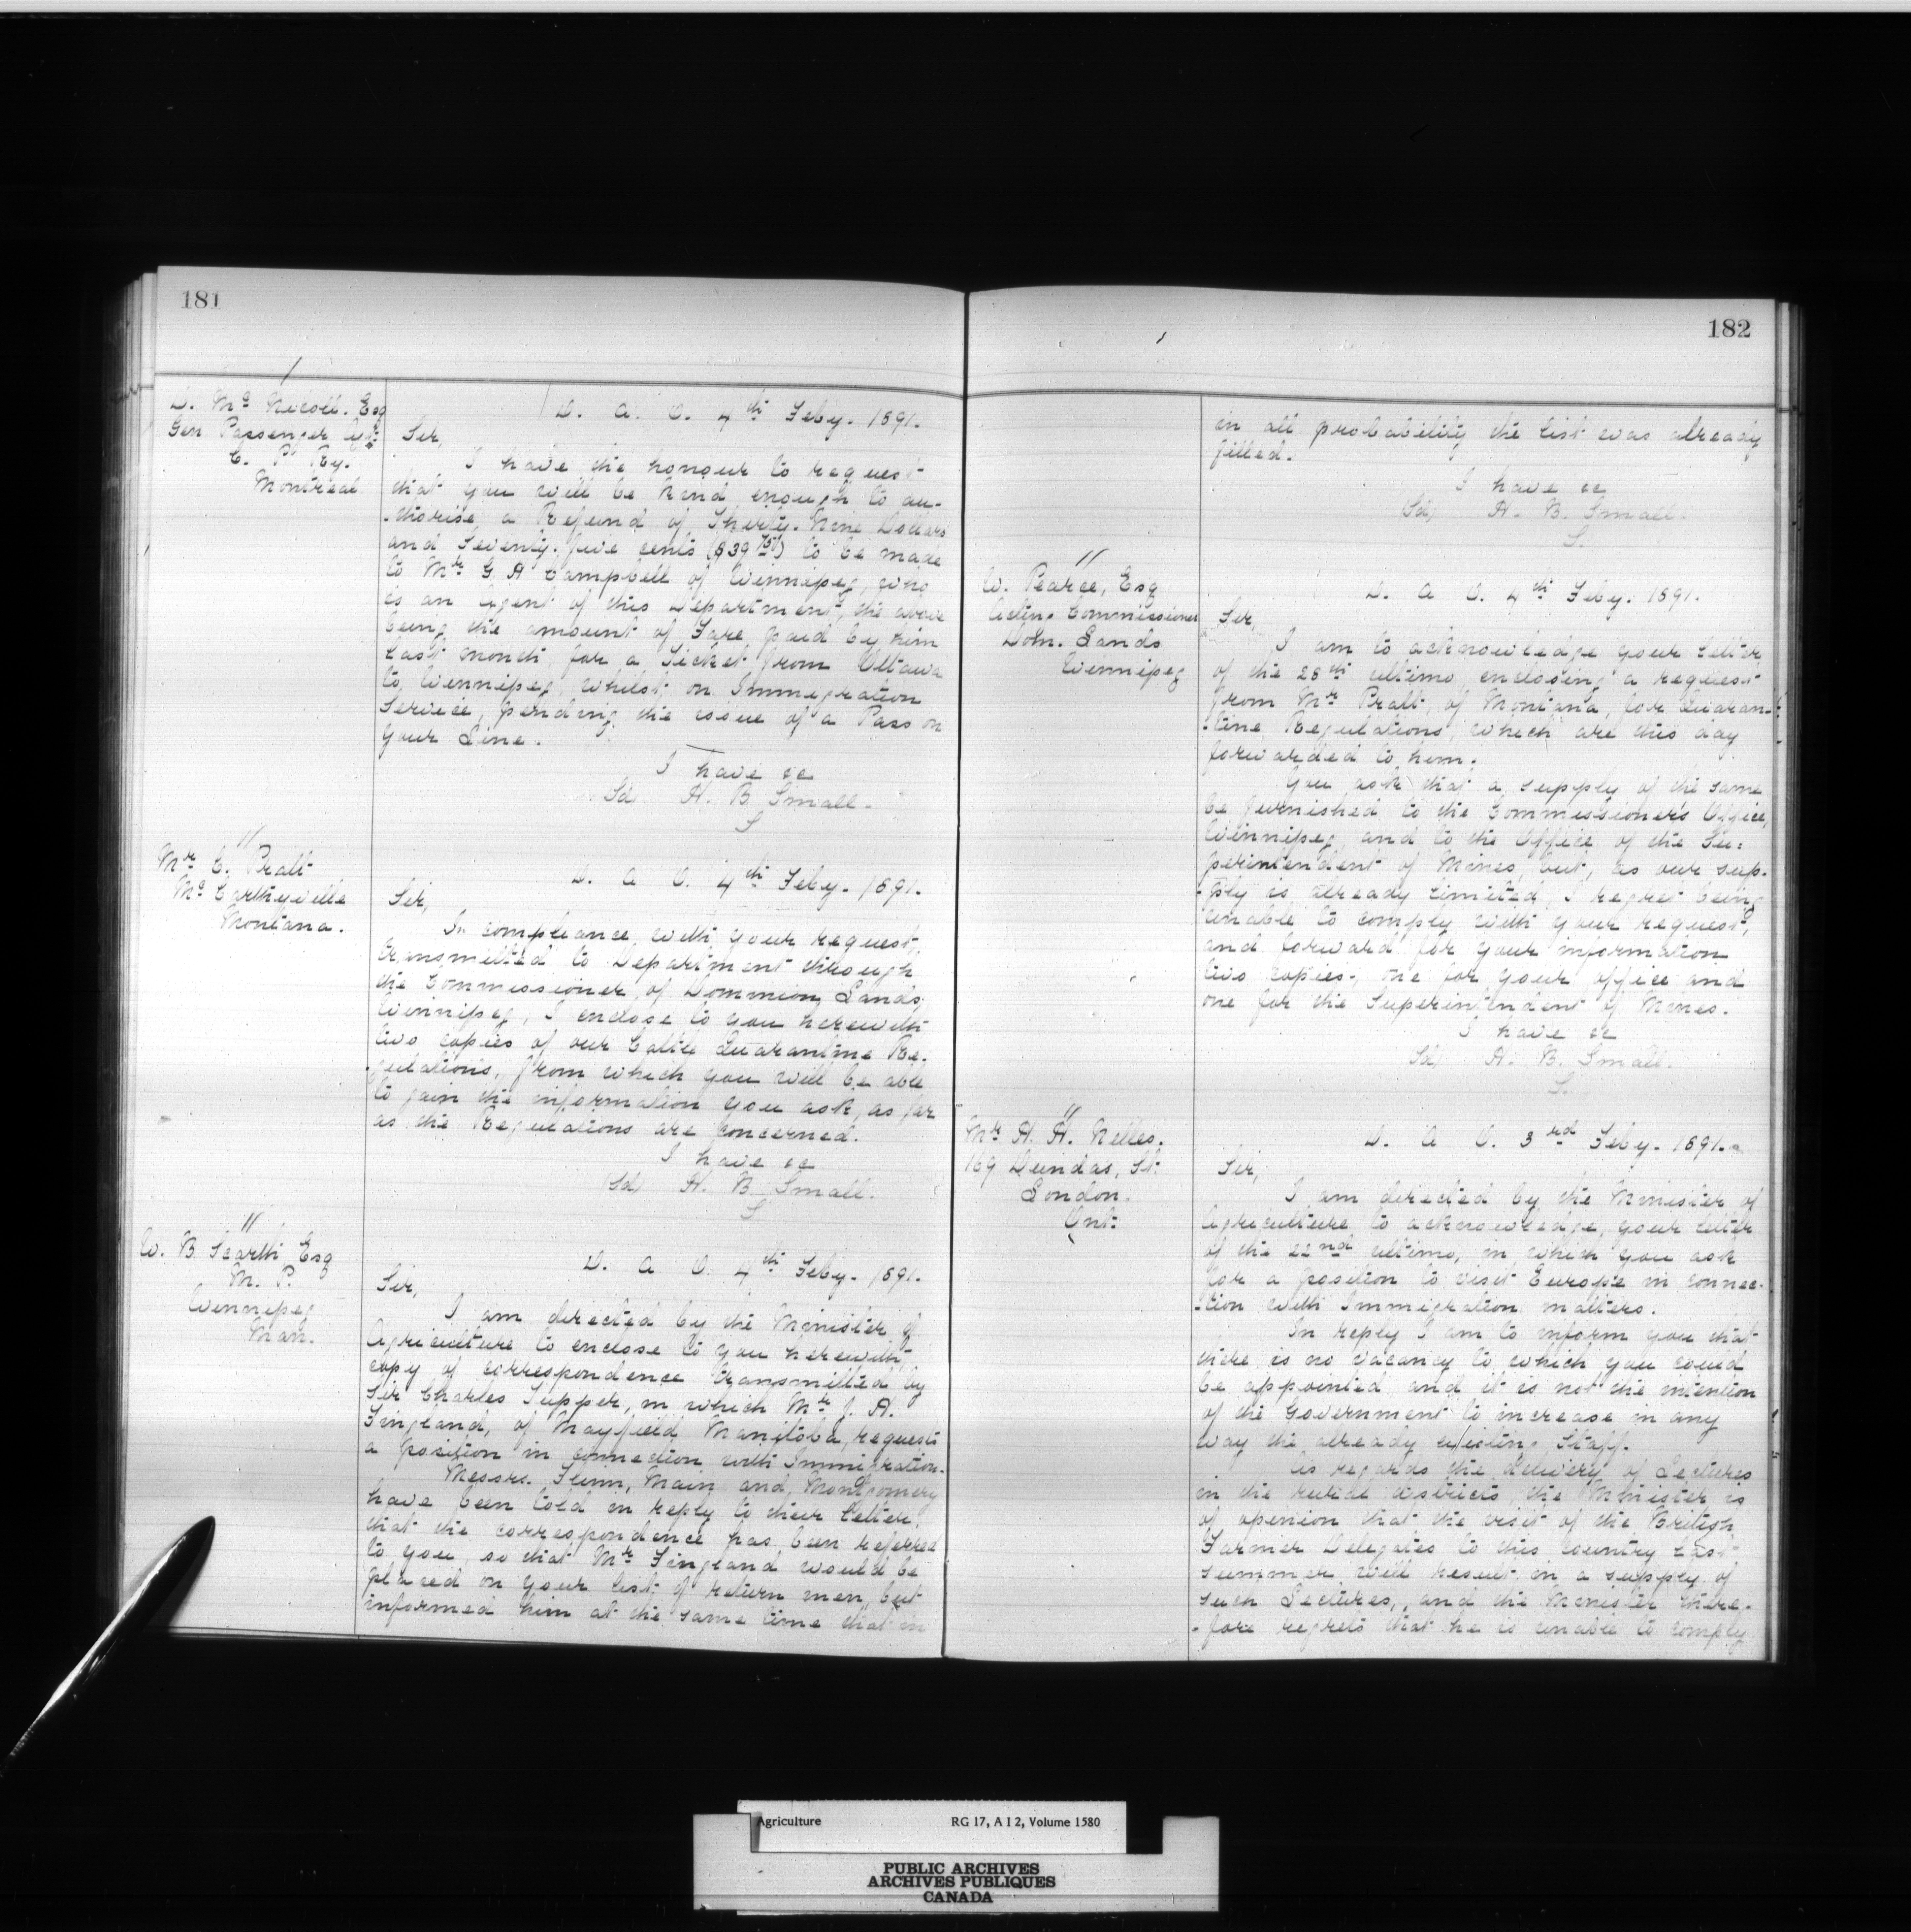 181
D. Mc Nicoll. Esq
Gen Passenger Agt
C. P. Ry.
Montreal
D. A. O. 4th Feby. 1891.
Sir,
I have the honour to request
that you will be kind enough to au-
-thorise, a Refund of Thirty-Nine Dollars
and Seventy-five cents ($39.75) to be made
to Mr G A Campbell of Winnipeg, who
is an Agent of this Department, the above
being the amount of Fare paid by him
last month, for a Ticket from Ottawa
to Winnipeg, whilst on Immigration
Service, pending the issue of a Pass on
your Line.
I have &c
Sd, H. B. Small.
S
"
Mr C. Pratt
McCarthyville
Montana.
D. A O. 4th Feby. 1891.
Sir,
In compliance with your request,
transmitted to Department through
the Commissioner of Dominion Lands,
Winnipeg, I enclose to you herewith
two copies of our Cattle Quarantine Re-
-gulations, from which you will be able
to gain the information you ask, as far
as the Regulations are concerned.
I have &c
Sd, H. B. Small.
S
"
W. B. Scarth Esq
M. P.
Winnipeg
Man.
D. A O. 4th Feby. 1891.
Sir,
I am directed by the Minister of
Agriculture to enclose to you herewith
copy of correspondence transmitted by
Sir Charles Tupper, in which Mr J. H.
Fingland, of Mayfield Manitoba, requests
a position in connection with Immigration.
Messrs. Flinn, Main and Montgomery
have been told in reply to their letter,
that the correspondence has been referred
to you, so that Mr Fingland would be
placed on your list of return men, but
informed him at the same time that in
182
in all probability the list was already
filled.
I have &c
Sd, H. B. Small.
S.
"
W. Pearce, Esq
Acting Commissioner
Dom. Lands
Winnipeg
D. A O. 4th Feby. 1891.
Sir,
I am to acknowledge your letter
of the 28th ultimo, enclosing a request
from Mr Pratt, of Montana, for Quaran-
-tine Regulations, which are this day
forwarded to him.
You ask that a supply of the same
be furnished to the Commissioner's Office,
Winnipeg, and to the Office of the Su-
perintendent of Mines, but, as our sup-
-ply is already limited, I regret being
unable to comply with your request,
and forward for your information
two copies, one for your office and
one for the Superintendent of Mines.
I have &c
Sd, H. B. Small.
S.
"
Mr H. H. Nelles.
169 Dundas, St.
London.
Ont.
D. A O. 3rd Feby. 1891.
Sir,
I am directed by the Minister of
Agriculture to acknowledge, your letter
of the 22nd ultimo, in which you ask
for a position to visit Europe in connec-
-tion with Immigration matters.
In reply I am to inform you that
there is no vacancy to which you could
be appointed, and it is not the intention
of the Government to increase in any
way the already existing Staff.
As regards the delivery of Lectures
in the rural districts, the Minister is
of opinion that the visit of the British
Farmer Delegates to this country last
summer will result in a supply of
such Lectures, and the Minister there-
-fore regrets that he is unable to comply
Agriculture RG 17, A I 2, Volume 1580
PUBLIC ARCHIVES
ARCHIVES PUBLIQUES
CANADA